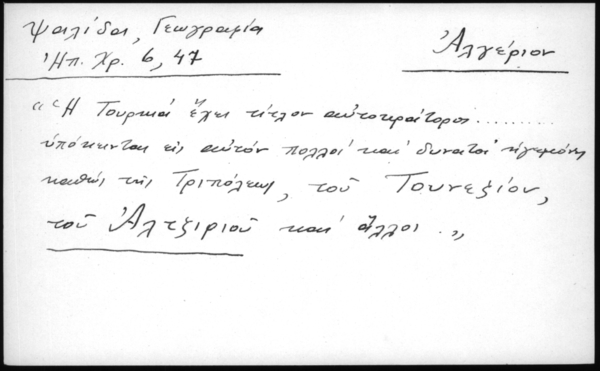 Ψαλίδα, Γεωγραφία
Ἠπ. Χρ. 6, 47
Ἀλγέριον
"Ἡ Τουρκιά ἔχει τίτλον αὐτοκράτορος.........
ὑπόκεινται εἰς αὐτόν πολλοί καί δυνατοί ἡγεμόνες
καθώς τῆς Τριπόλεως, τοῦ Τουνεζίου,
τοῦ Ἀλτζιριοῦ καί ἄλλοι."